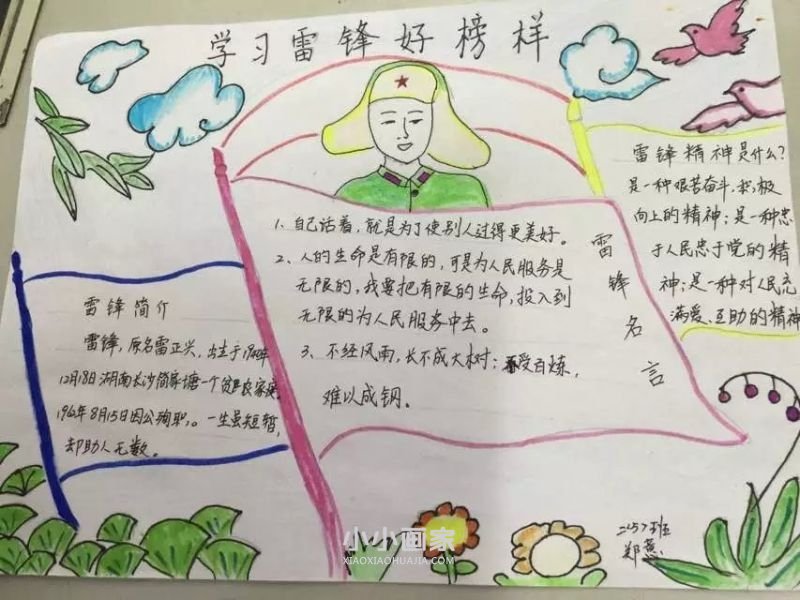 学习雷锋好榜样
雷锋精神是什么?
是一种艰苦奋斗,积极
向上的精神;是一种忠
于人民忠于党的精
神;是一种对人民充
满爱、互助的精神
1、自己活着,就是为了使别人过得更美好。
2、人的生命是有限的,可是为人民服务是
无限的,我要把有限的生命,投入到
无限的为人民服务中去。
3、不经风雨,长不成大树;不受百炼,
难以成钢。
雷锋名言
雷锋简介
雷锋,原名雷正兴,出生于1940年
12月18日湖南长沙简家塘一个贫农家庭
8月15日因公殉职,。一生虽短暂,
却助人无数。
班
郑燕
小小画家
XIAOXIAOHUAJIA.COM